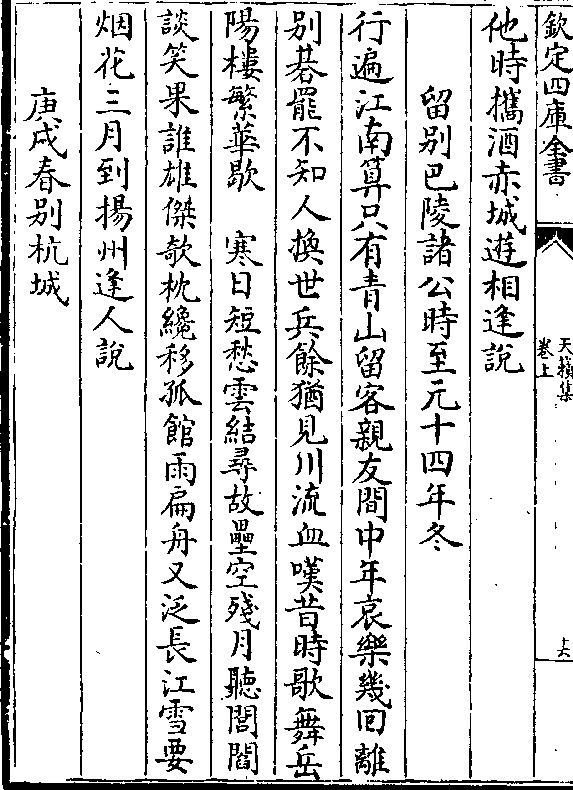 欽定四庫全書
天籟集
卷上
十六
他時攜酒赤城遊相逢說
留别巴陵諸公時至元十四年冬
行遍江南算只有青山留客親友間中年哀樂幾回離
别棊罷不知人換世兵餘猶見川流血嘆昔時歌舞岳
陽樓繁華歇　寒日短愁雲結尋故壘空殘月聽閭閻
談笑果誰雄傑欹枕纔移孤館雨扁舟又泛長江雪要
烟花三月到揚州逢人說
庚戌春别杭城